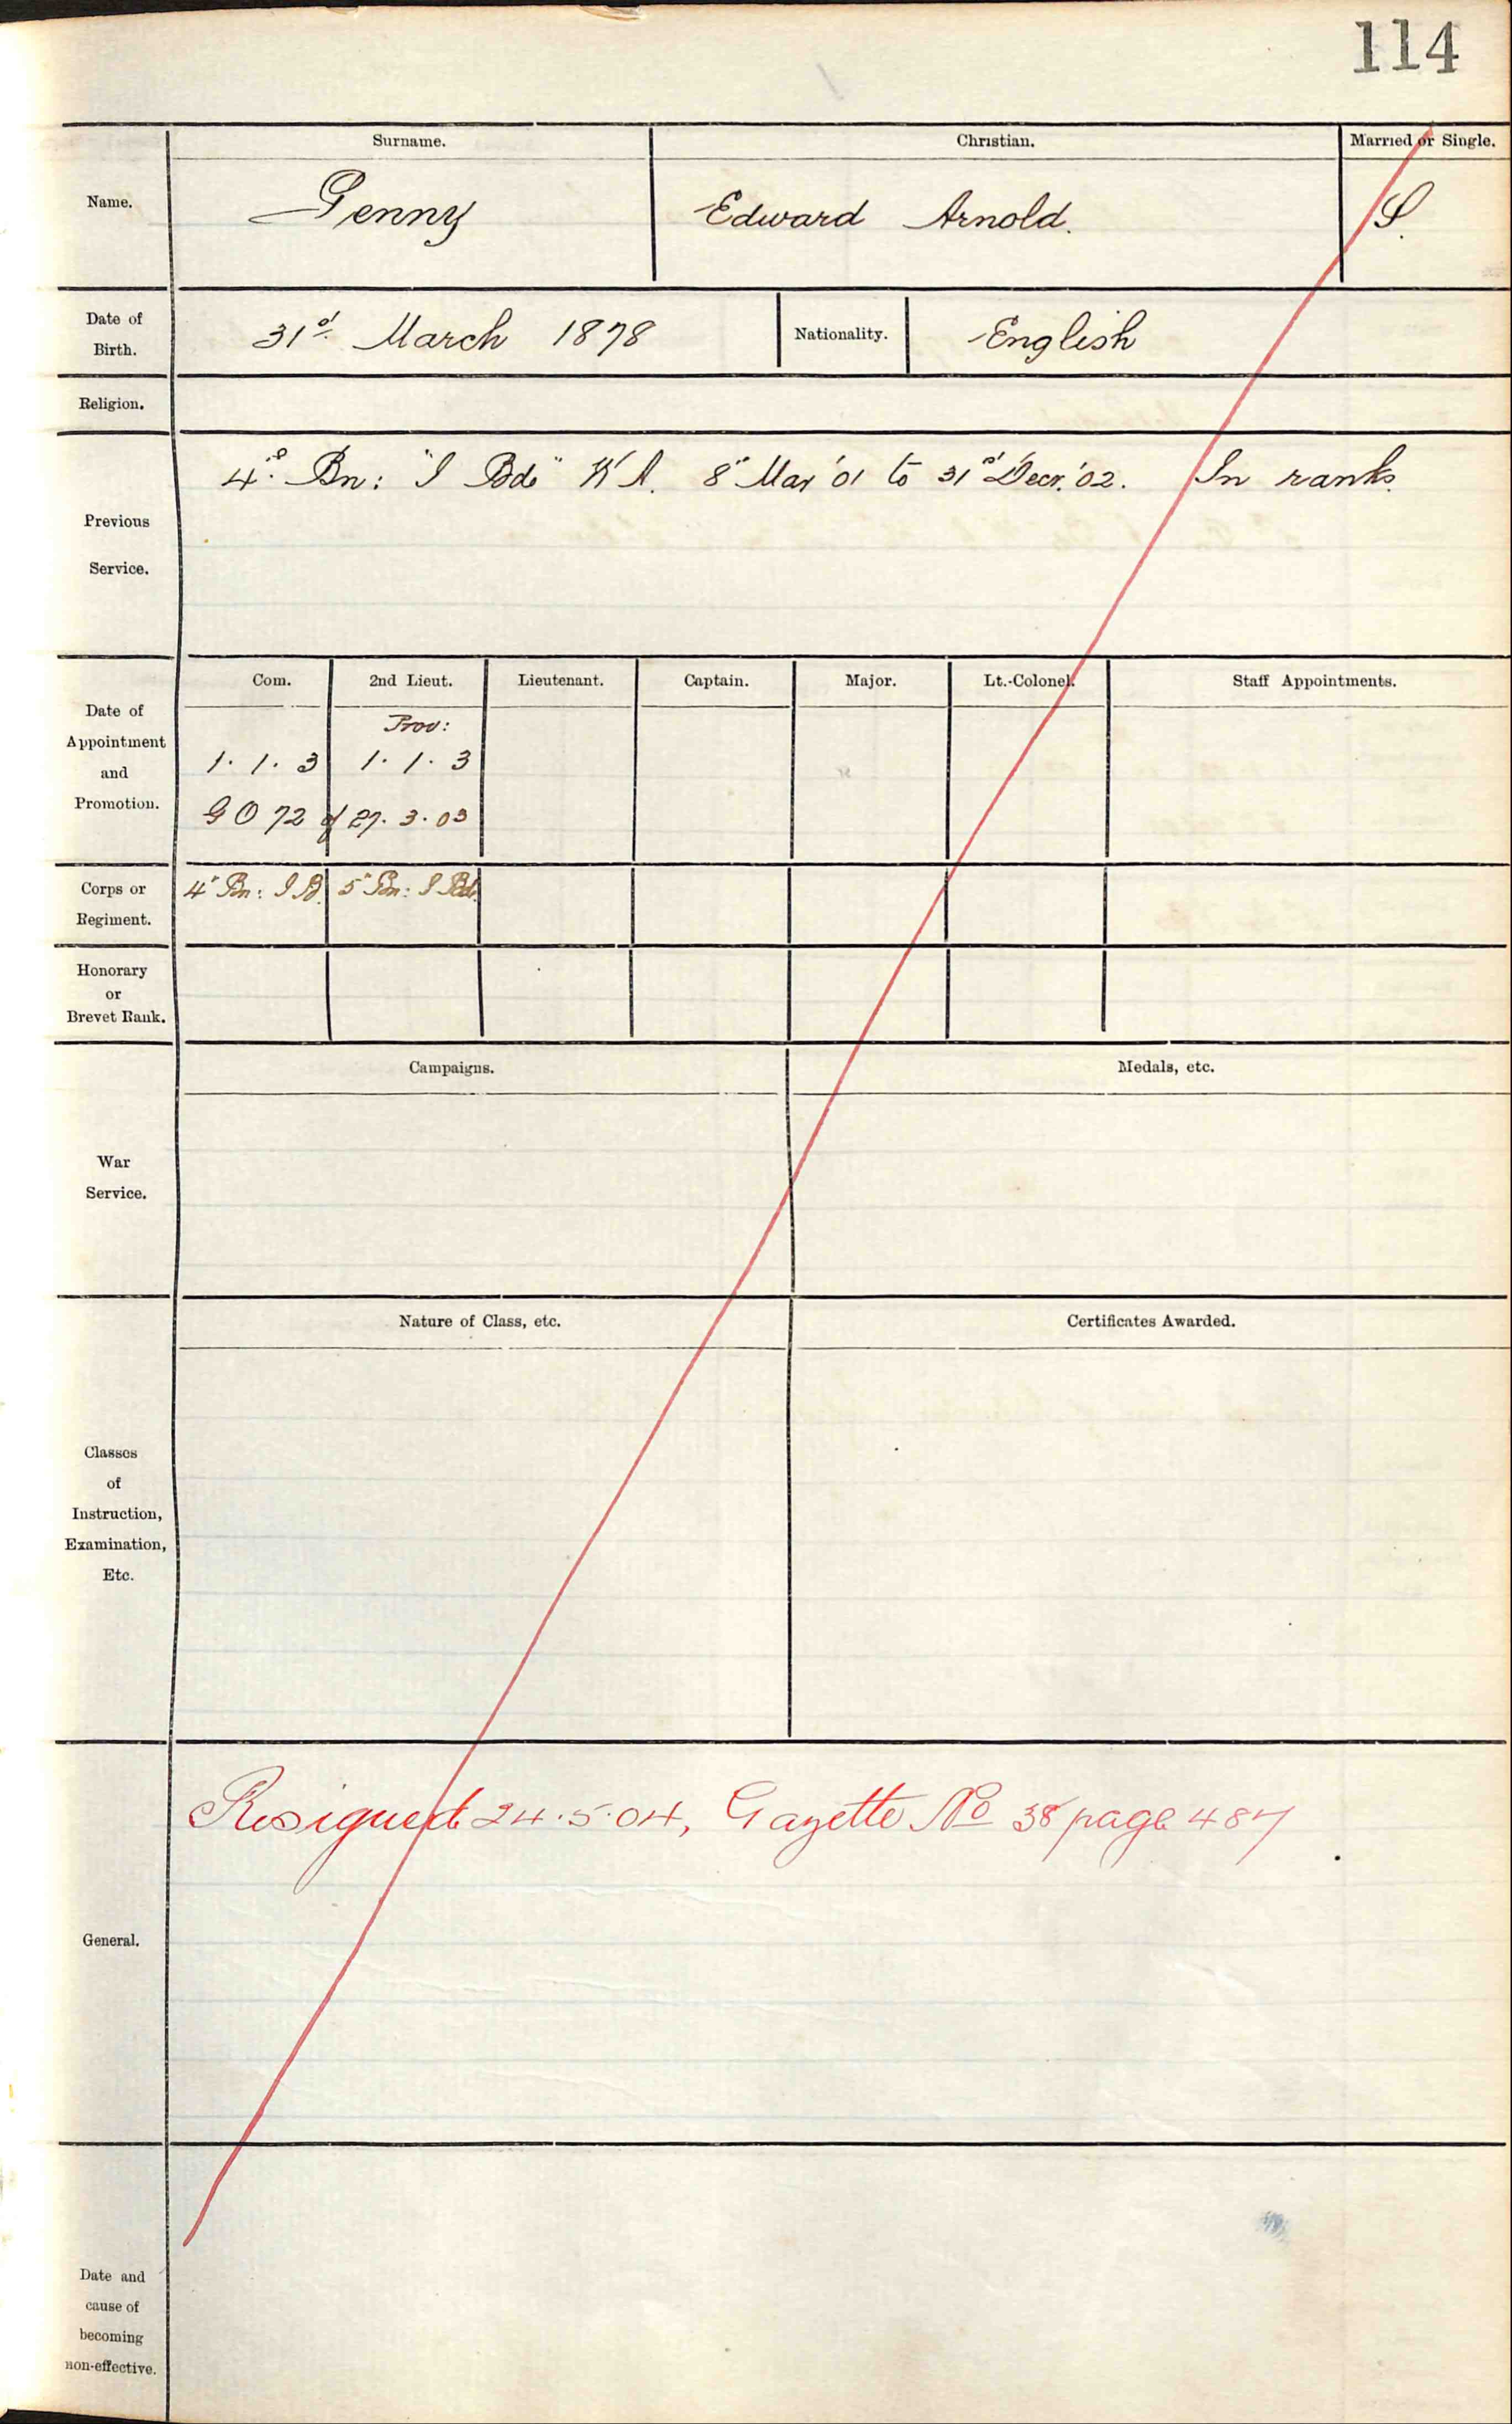 114
Surname. Christian. Married or Single.
Name. Genny Edward Arnold. S.
Date of Birth. 31st March 1878 Nationality. English
Religion.
Previous Service. 4th Bn: "I Bde" W A. 8" Mar '01 to 31st Decr. '02. In ranks.
Com. 2nd Lieut. Lieutenant. Captain. Major. Lt.-Colonel. Staff Appointments.
Date of Appointment and Promotion.
Prov:
1. 1. 3 1. 1. 3
G O 72 of 27. 3. 03
Corps or Regiment. 4" Bn: I B. 5" Bn: I Bde.
Honorary or Brevet Rank.
Campaigns. Medals, etc.
War Service.
Nature of Class, etc. Certificates Awarded.
Classes of Instruction, Examination, Etc.
Resigned 24.5.04, Gazette No 38 page 487
General.
Date and cause of becoming non-effective.